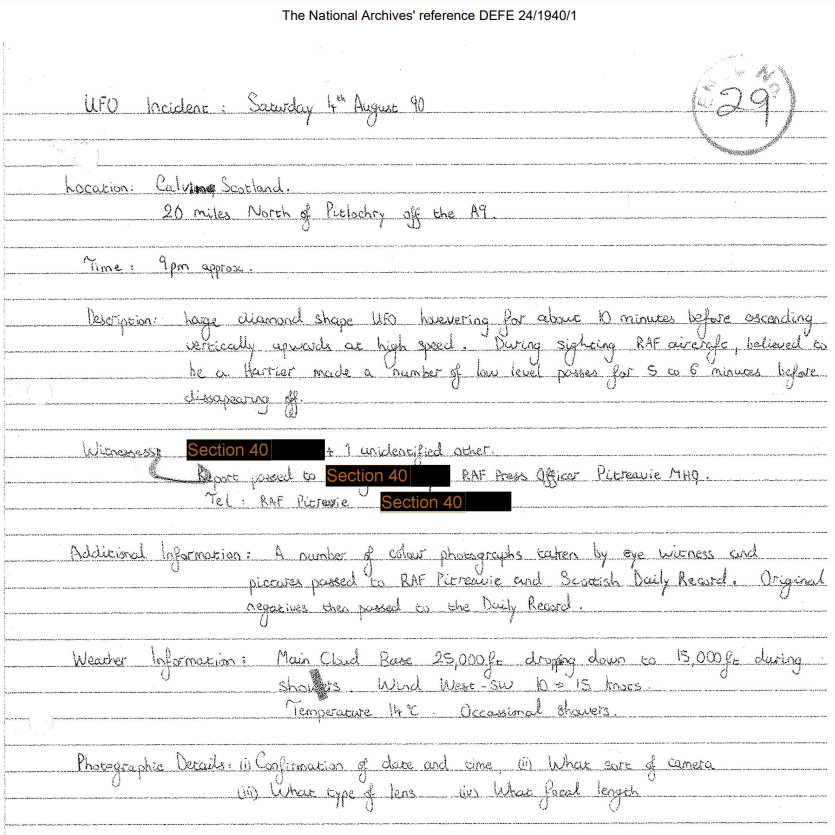 The National Archives' reference DEFE 24/1940/1
EN... NO.
29
UFO Incident : Saturday 4th August 90
Location: Calvine, Scotland.
20 miles North of Pitlochry off the A9.
Time : 9pm approx.
Description: Large diamond shape UFO hovering for about 10 minutes before ascending
vertically upwards at high speed. During sighting RAF aircraft, believed to
be a Harrier made a number of low level passes for 5 to 6 minutes before
dissapearing off.
Witnesses: Section 40 + 1 unidentified other.
Report passed to Section 40 RAF Press Officer Pitreavie MHQ.
Tel : RAF Pitreavie Section 40
Additional Information: A number of colour photographs taken by eye witness and
pictures passed to RAF Pitreavie and Scottish Daily Record. Original
negatives then passed to the Daily Record.
Weather Information: Main Cloud Base 25,000ft dropping down to 15,000ft during
showers. Wind West-SW 10 → 15 knots.
Temperature 14°C. Occassional showers.
Photographic Details: (i) Confirmation of date and time, (ii) What sort of camera
(iii) What type of lens (iv) What focal length